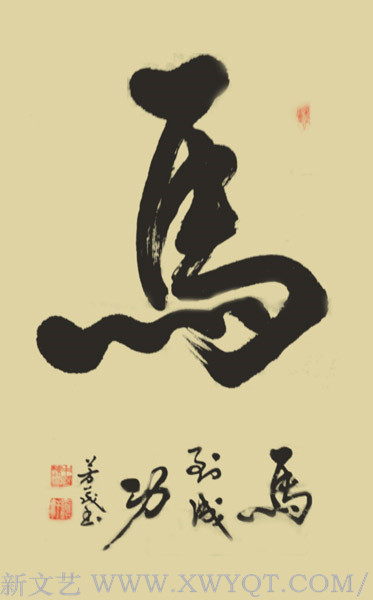 馬
馬
到成
功
新文艺 WWW.XWYQT.COM/